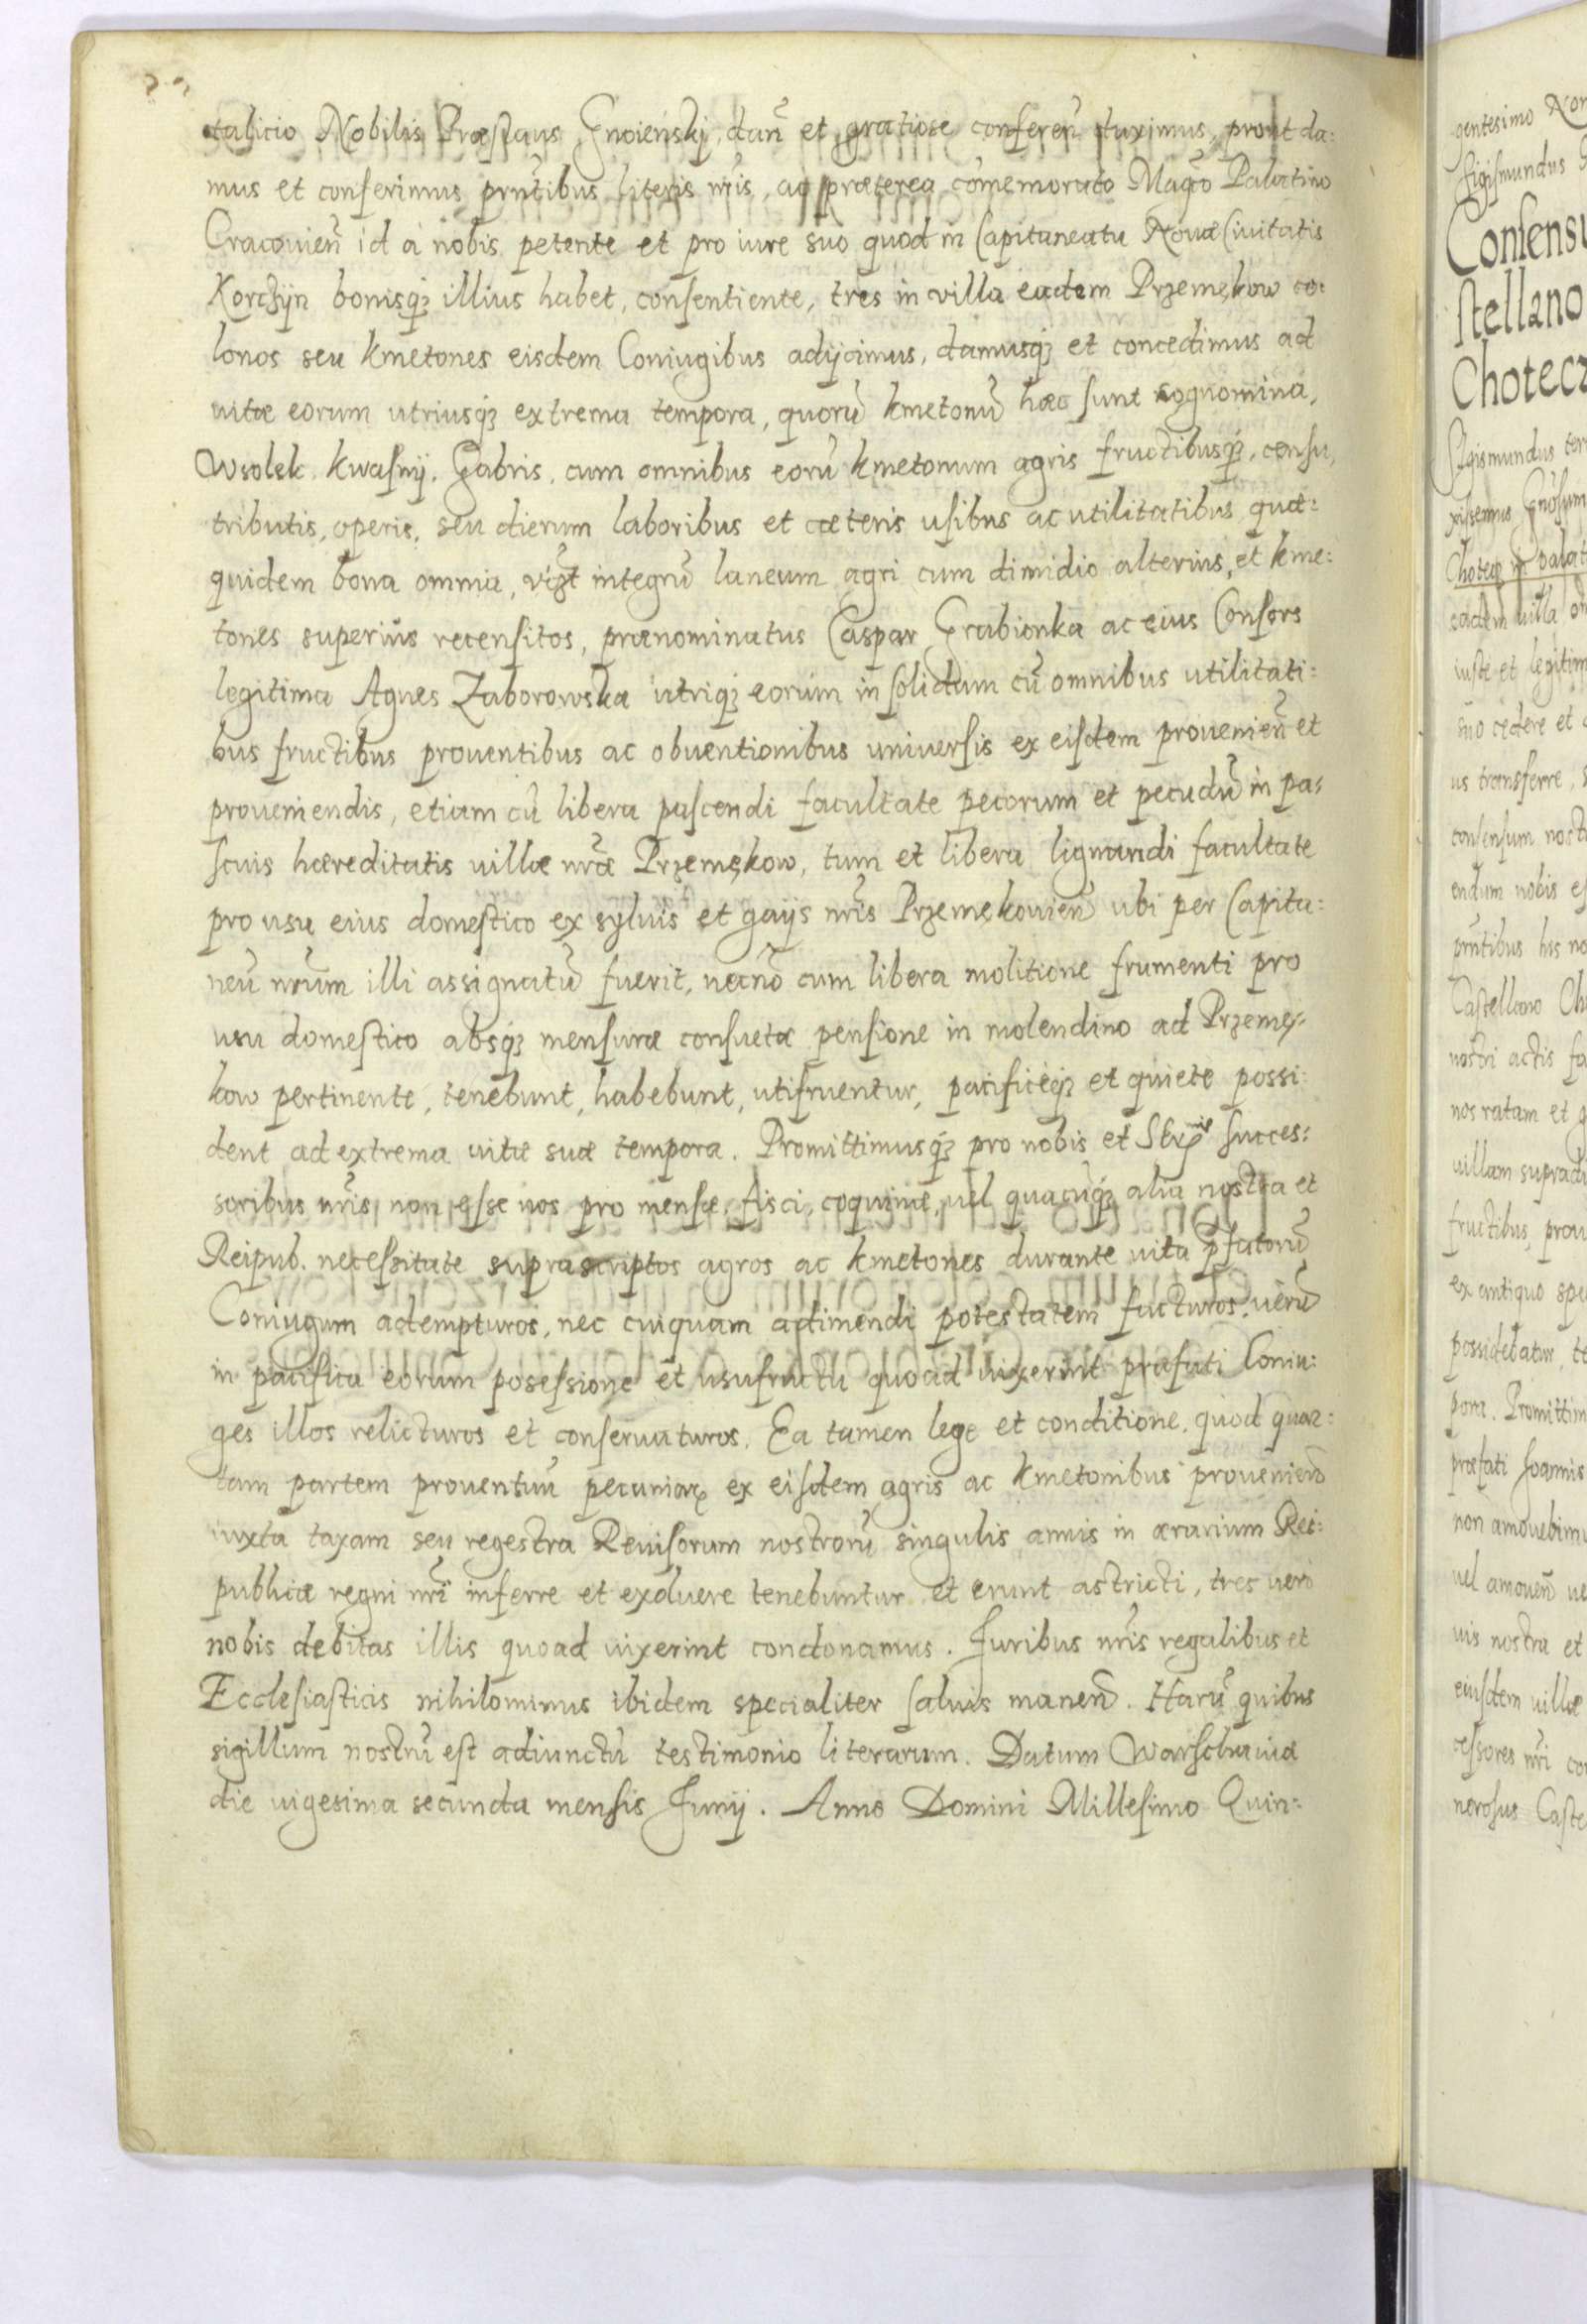 talicio Nobilis Præslaus Gnoienskj, dañ et gratiose confereñ duximus, prout da:
mus et conferimus prñtibus literis nr̃is, ac præterea cõmemorato Mag̃co Palatino
Cracouieñ id à nobis petente et pro iure suo quod in Capitaneatu Nouæ Ciuitatis
Korchijn bonisq3 illius habet, consentiente, tres in villa eadem Przemękow co:
lonos seu kmetones eisdem Coniugibus adijcimus, damusq3 et concedimus ad
uitæ eorum utriusq3 extrema tempora, quorũ kmetonũ hæc sunt cognomina,
Wsolek. Kwasnij. Gabris. cum omnibus eorũ kmetonum agris fructibusq3, censu,
tributis, operis, seu dierum laboribus et cæteris usibus ac utilitatibus quæ:
quidem bona omnia, vig̃t integrũ laneum agri cum dimidio alterius, et kme:
tones superius recensitos, prænominatus Caspar Grabionka ac eius Consors
legitima Agnes Zaborowska utriq3 eorum in solidum cũ omnibus utilitati:
bus fructibus prouentibus ac obuentionibus uniuersis ex eisdem prouenieñ et
proueniendis, etiam cũ libera pascendi facultate pecorum et pecudũ in pa:
scuis hæreditatis uillæ nr̃æ Przemękow, tum et libera lignandi facultate
pro usu eius domestico ex syluis et gaijs nr̃is Przemękouieñ ubi per Capita:
neũ nr̃um illi assignatũ fuerit, necnõ cum libera molitione frumenti pro
usu domestico absq3 mensuræ consuetæ pensione in molendino ad Przemę:
kow pertinente, tenebunt, habebunt, utifruentur, pacificeq3 et quiete possi:
dent ad extrema uitæ suæ tempora. Promittimusq3 pro nobis et Ser̃mis succes:
soribus nr̃is non esse nos pro mensæ, fisci, coquinæ, uel quacũq3 alia nostra et
Reipub. necessitate suprascriptos agros ac kmetones durante uita p̃fatorũ
Coniugum adempturos, nec cuiquam adimendi potestatem facturos, uerũ
in pacifica eorum posessione et usufructu quoad uixerint præfati Coniu:
ges illos relicturos et conseruaturos. Ea tamen lege et conditione, quod quar:
tam partem prouentuũ pecuniar̃ ex eisdem agris ac kmetonibus prouenieñ
iuxta taxam seu regestra Reuisorum nostrorũ singulis annis in ærarium Rei:
publicæ regni nr̃i inferre et exoluere tenebuntur et erunt astricti, tres uero
nobis debitas illis quoad uixerint condonamus. Juribus nr̃is regalibus et
Ecclesiasticis nihilominus ibidem specialiter saluis maneñ. Harũ quibus
sigillum nostrũ est adiunctũ testimonio literarum. Datum Warschauiæ
die uigesima secunda mensis Junij. Anno Domini Millesimo Quin:
gentesimo Non
Sigismundus
Consensu
stellano
Chotecz
Sigismundus ter
Chotecz
eadem uilla
iuste et legitim
suo cedere et
us transferre,
consensum nostr
endum nobis es
prñtibus his no
Castellano Ch
nostri actis fa
nos ratam et
uillam supradi
fructibus, prou
ex antiquo spe
possidebatur, te
pora. Promittim
præfati Joannis
non amouebimu
uel amoueñ ue
uis nostra et
eiusdem uillæ
cessores nr̃i co
nerosus Caste